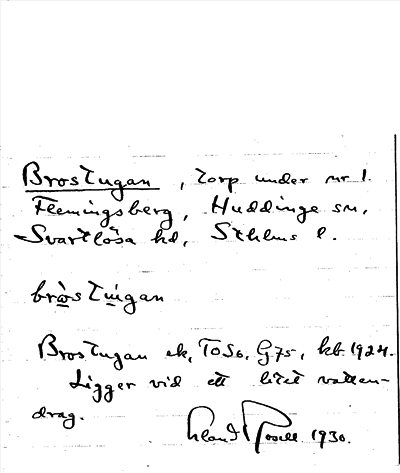 Brostugan, torp under nr 1.
Flemingsberg, Huddinge sn,
Svartlösa hd, Sthlms l.
bròstùgan
Brostugan ek, TOSo, G75, kb 1924.
Ligger vid ett litet vatten-
drag.
1930.